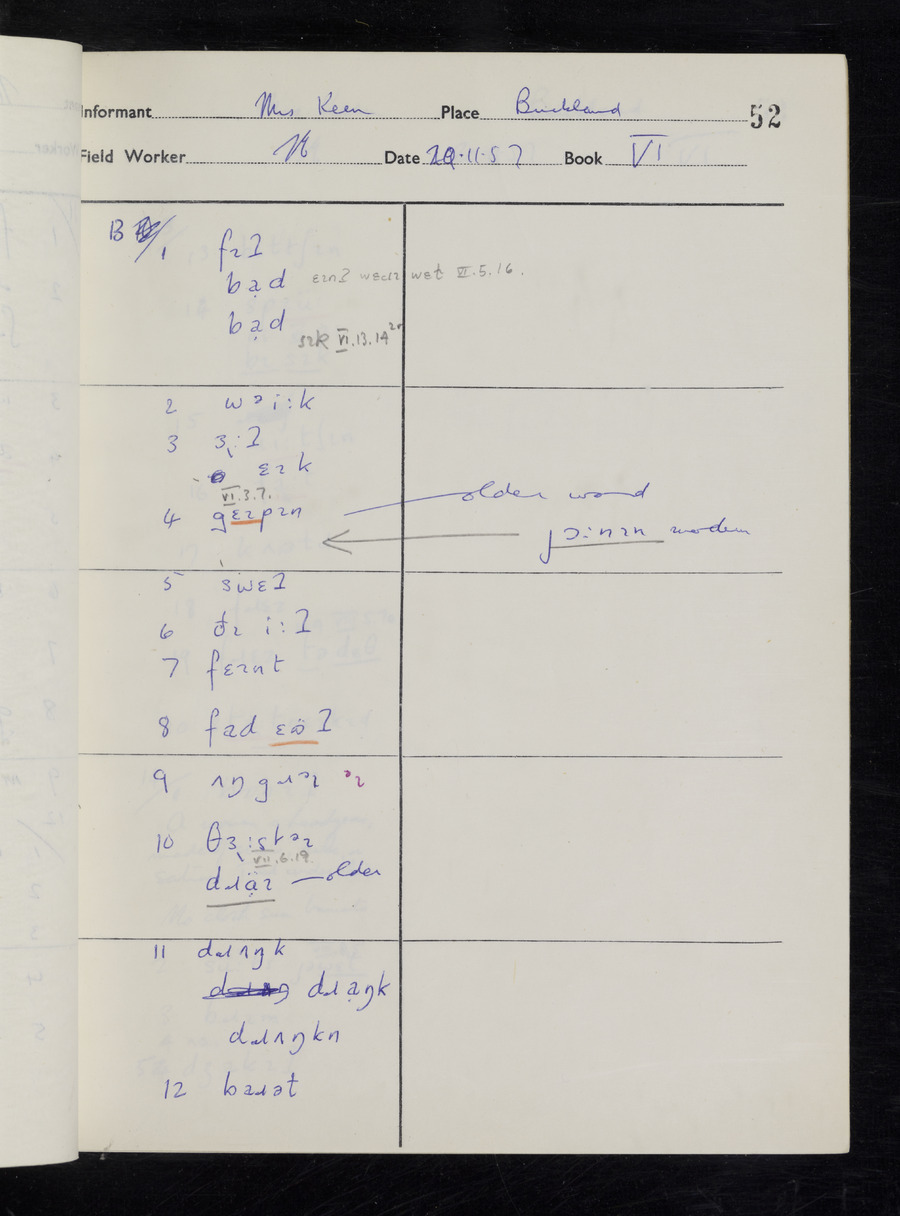 Informant Mrs Keen Place Buckland 52
Field Worker Date 20.11.57 Book VI
1 fɪl
bạd wɛt VI.5.16.
bạd sɪk VI.13.14
2 wəi:k
3 ɜ:l
ɛɪk
VI.3.7.
4 gɛɪpɪn older word
jɔ:nɪn modern
5 swɛl
6 ðɪ i:l
7 fɛɪnt
8 fad ɛöl
9 ʌŋgɹəɪ əɪ
10 θɜ:stəɪ
VII.6.19.
dɹạ̈ɪ — older
11 dɹʌŋk
dɹạŋk
dɹʌŋkn
12 bəɹət